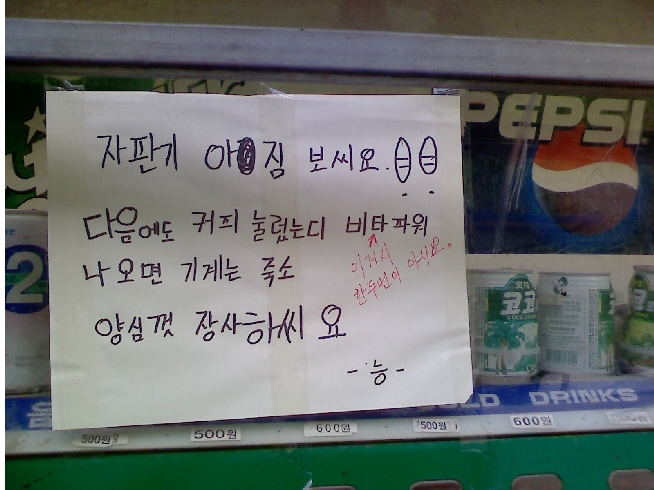 자판기 아 짐 보씨요.
다음에도 커피 눌렀는디 비타파워
나오면 기계는 죽소
이거시
한두번이 아시요.
양심껏 장사하씨요
-능-
PEPSI
코코
D DRINKS
500원
500원
600원
500원
600원